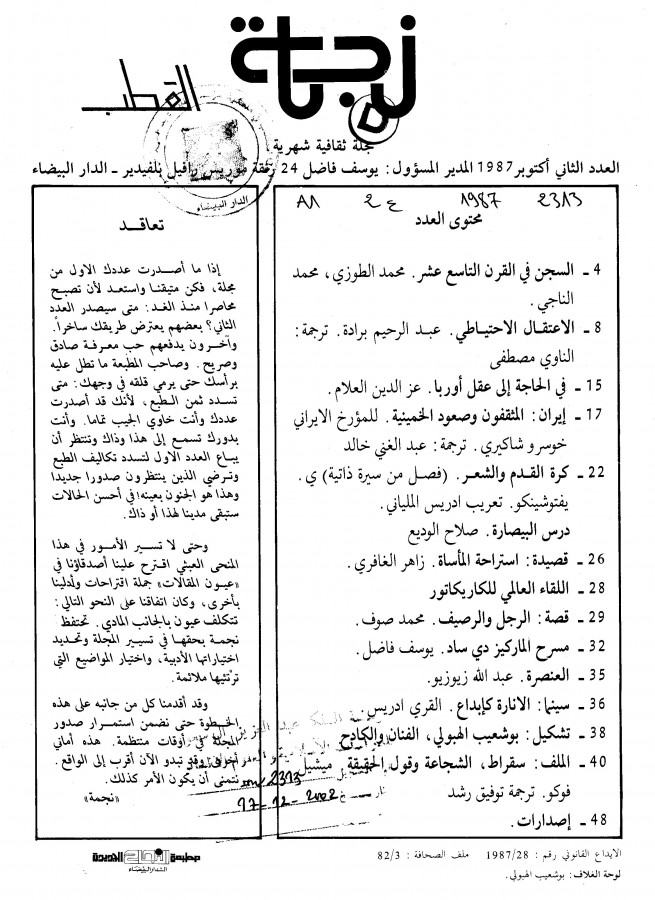 نجمة
القطب
مجلة ثقافية شهرية
العدد الثاني أكتوبر 1987 المدير المسؤول: يوسف فاضل 24 زنقة موريس رافيل بلفيدير ــ الدار البيضاء
الدار البيضاء
A1 2 ع 1987 2313
محتوى العدد
4 ــ السجن في القرن التاسع عشر. محمد الطوزي، محمد
الناجي.
8 ــ الاعتقال الاحتياطي. عبد الرحيم برادة. ترجمة:
الناوي مصطفى
15 ــ في الحاجة إلى عقل أوربا. عز الدين العلام.
17 ــ إيران: المثقفون وصعود الخمينية. للمؤرخ الايراني
خوسرو شاكيري. ترجمة: عبد الغني خالد
22 ــ كرة القدم والشعر. (فصل من سيرة ذاتية) ي.
يفتوشينكو. تعريب ادريس الملياني.
درس البيصارة. صلاح الوديع
26 ــ قصيدة: استراحة المأساة. زاهر الغافري.
28 ــ اللقاء العالمي للكاريكاتور
29 ــ قصة: الرجل والرصيف. محمد صوف.
32 ــ مسرح الماركيز دي ساد. يوسف فاضل.
35 ــ العنصرة. عبد الله زيوزيو.
36 ــ سينما: الانارة كإبداع. القري ادريس
38 ــ تشكيل: بوشعيب الهبولي، الفنان والكادح
40 ــ الملف: سقراط، الشجاعة وقول الحقيقة. ميشيل
فوكو. ترجمة توفيق رشد
48 ــ إصدارات.
تعاقـد
إذا ما أصدرت عددك الاول من
مجلة، فكن متيقنا واستعد لأن تصبح
محاصرا منذ الغد: متى سيصدر العدد
الثاني؟ بعضهم يعترض طريقك ساخراً.
وآخرون يدفعهم حب معرفة صادق
وصريح. وصاحب المطبعة ما تطل عليه
برأسك حتى يرمي قلقه في وجهك: متى
تسدد ثمن الطبع، لأنك قد أصدرت
عددك وأنت خاوي الجيب تماما. وأنت
بدورك تسمع إلى هذا وذاك وتنتظر أن
يباع العدد الاول لتسدد تكاليف الطبع
وترضي الذين ينتظرون صدورا جديدا
وهذا هو الجنون بعينه! في أحسن الحالات
ستبقى مدينا لهذا أو ذاك.
وحتى لا تسير الأمور في هذا
المنحى العبثي اقترح علينا أصدقاؤنا في
«عيون المقالات» جملة اقتراحات وأدلينا
بأخرى، وكان اتفاقنا على النحو التالي:
تتكلف عيون بالجانب المادي. تحتفظ
نجمة بحقها في تسيير المجلة وتحديد
اختياراتها الأدبية، واختيار المواضيع التي
ترتئيها ملائمة.
وقد أقدمنا كل من جانبه على هذه
الخطوة حتى نضمن استمرار صدور
المجلة في أوقات منتظمة. هذه أماني
أخرى وقد تبدو الآن أقرب إلى الواقع.
نتمنى أن يكون الأمر كذلك.
«نجمة»
2313
17-12-2002
الايداع القانوني رقم: 1987/28 ملف الصحافة: 82/3
لوحة الغلاف: بوشعيب الهبولي.
مطبعة النجاح الجديدة
الدار البيضاء